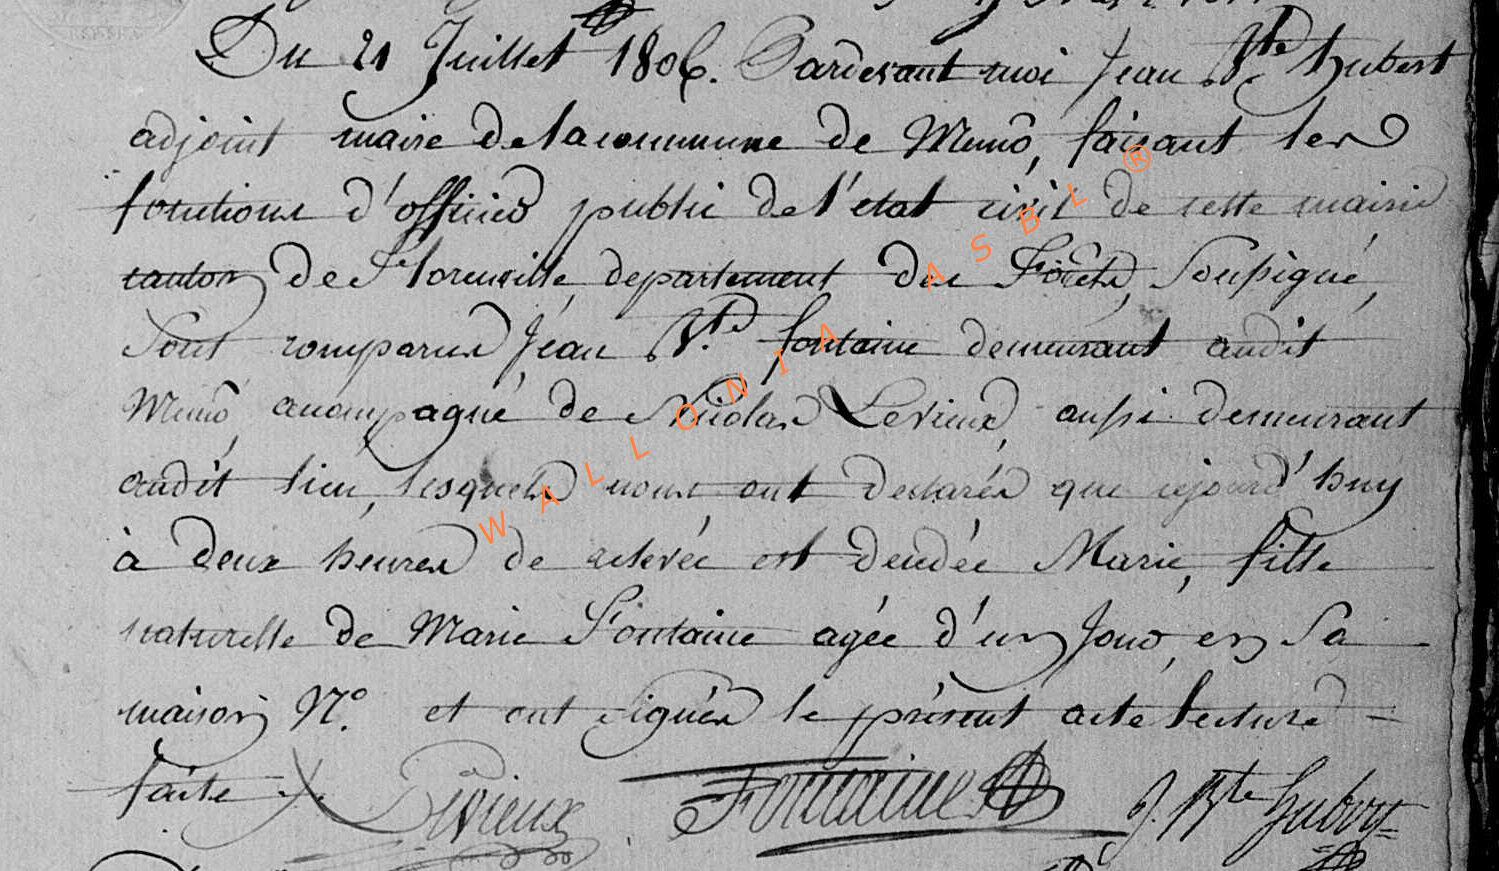 Du 21 Juillet 1806. Pardevant moi Jean Bte hubert
adjoint maire de la commune de Muno, faisant les
fonctions d'officier public de l'état civil de cette mairie
canton de Florenville, departement des Forêts, Soussigné,
Sont comparus Jean Bte fontaine demeurant audit
Muno, accompagné de Nicolas Levieux, aussi demeurant
audit lieu, lesquels nous ont declarés que ajourd'huy
à deux heures de relevée est décédée Marie, fille
naturelle de Marie Fontaine agée d'un Jour, en Sa
maison N.° et ont signés le présent acte lecture
faite
Levieux Fontaine J. Bte Hubert
WALLONIA ASBL ®